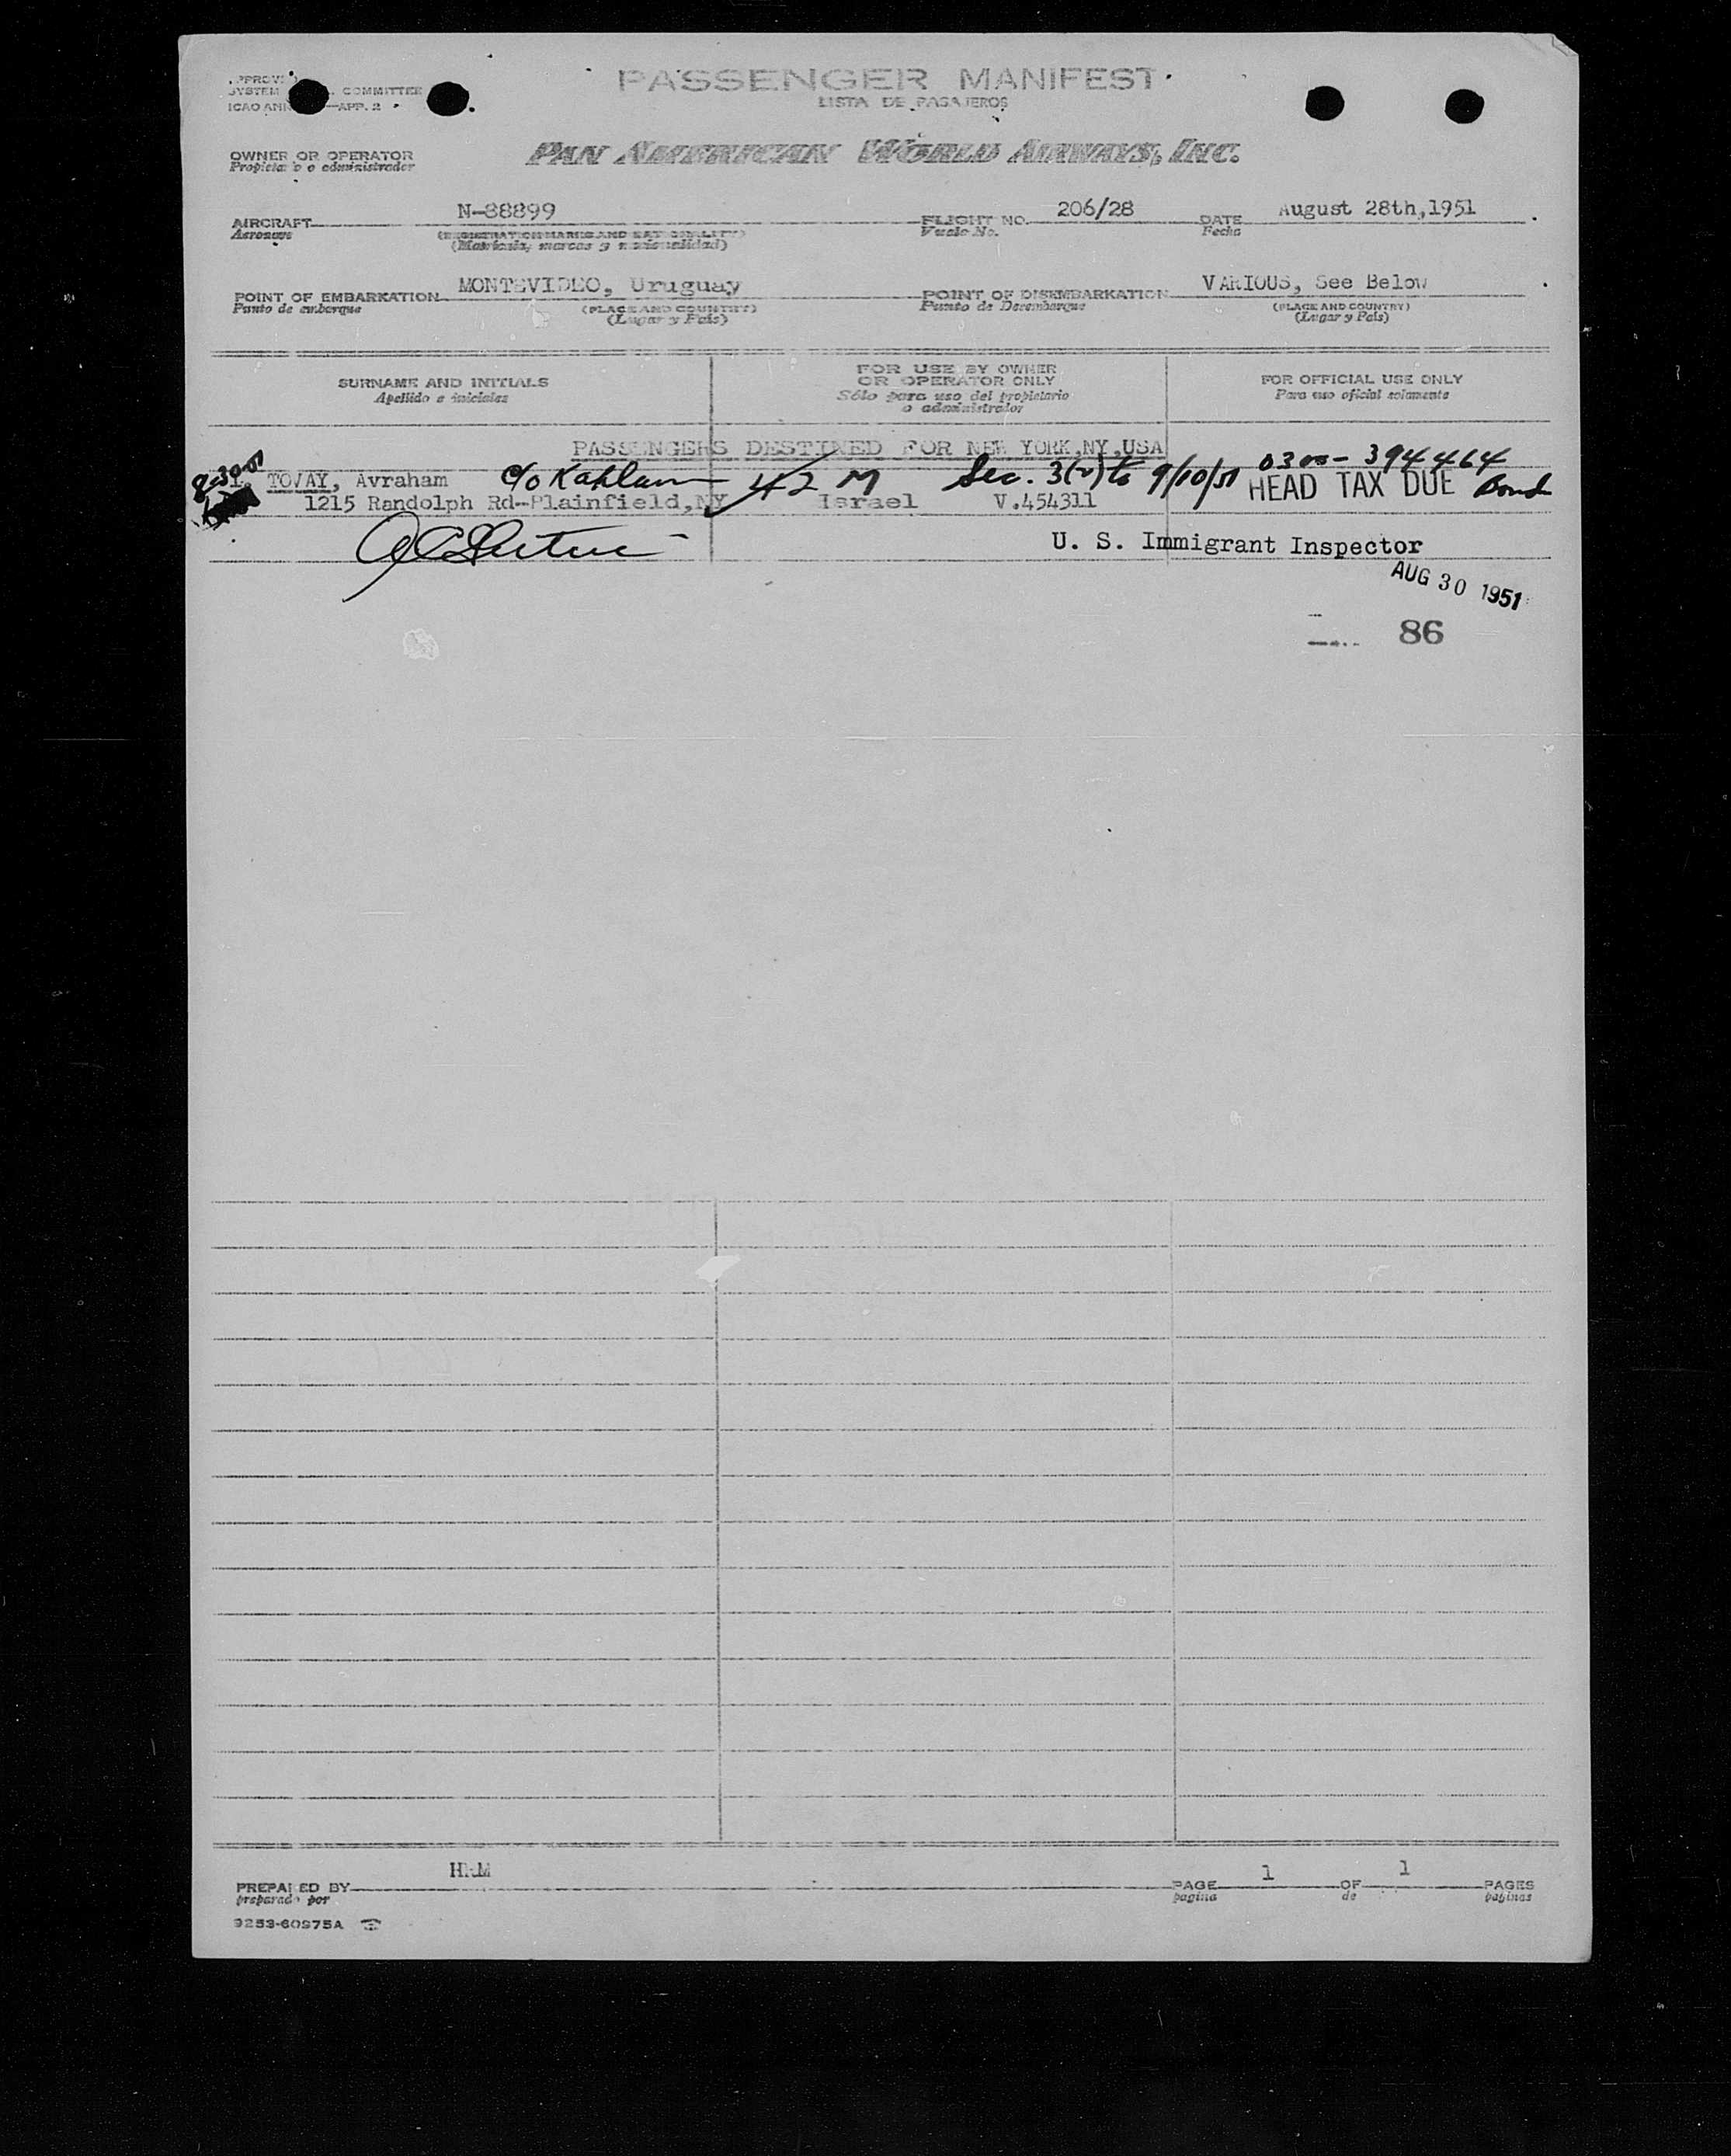 PASSENGER MANIFEST
LISTA DE PASAJEROS
SYSTEM COMMITTEE
—APP. 2
OWNER OR OPERATOR
PAN AMERICAN WORLD AIRWAYS, INC.
Propietario o administrador
AIRCRAFT N-88899 FLIGHT NO. 206/28 DATE August 28th,1951
Aeronave (REGISTRATION MARKS AND NATIONALITY) Vuelo No. Fecha
(Matricula, marcas y nacionalidad)
POINT OF EMBARKATION MONTEVIDEO, Uruguay POINT OF DISEMBARKATION VARIOUS, See Below
Punto de embarque (PLACE AND COUNTRY) Punto de Desembarque (PLACE AND COUNTRY)
(Lugar y Pais) (Lugar y Pais)
SURNAME AND INITIALS
Apellido e iniciales
FOR USE BY OWNER
OR OPERATOR ONLY
Sólo para uso del propietario
o administrador
FOR OFFICIAL USE ONLY
Para uso oficial solamente
PASSENGERS DESTINED FOR NEW YORK,NY,USA
0300- 394464
1. TOVAY, Avraham c/o Kaplan 42 M Sec. 3(2) to 9/10/51 HEAD TAX DUE Bond
1215 Randolph Rd--Plainfield,NY Israel V.454311
U. S. Immigrant Inspector
AUG 30 1951
86
PREPARED BY HRM PAGE 1 OF 1 PAGES
preparado por pagina de paginas
9253-60975A